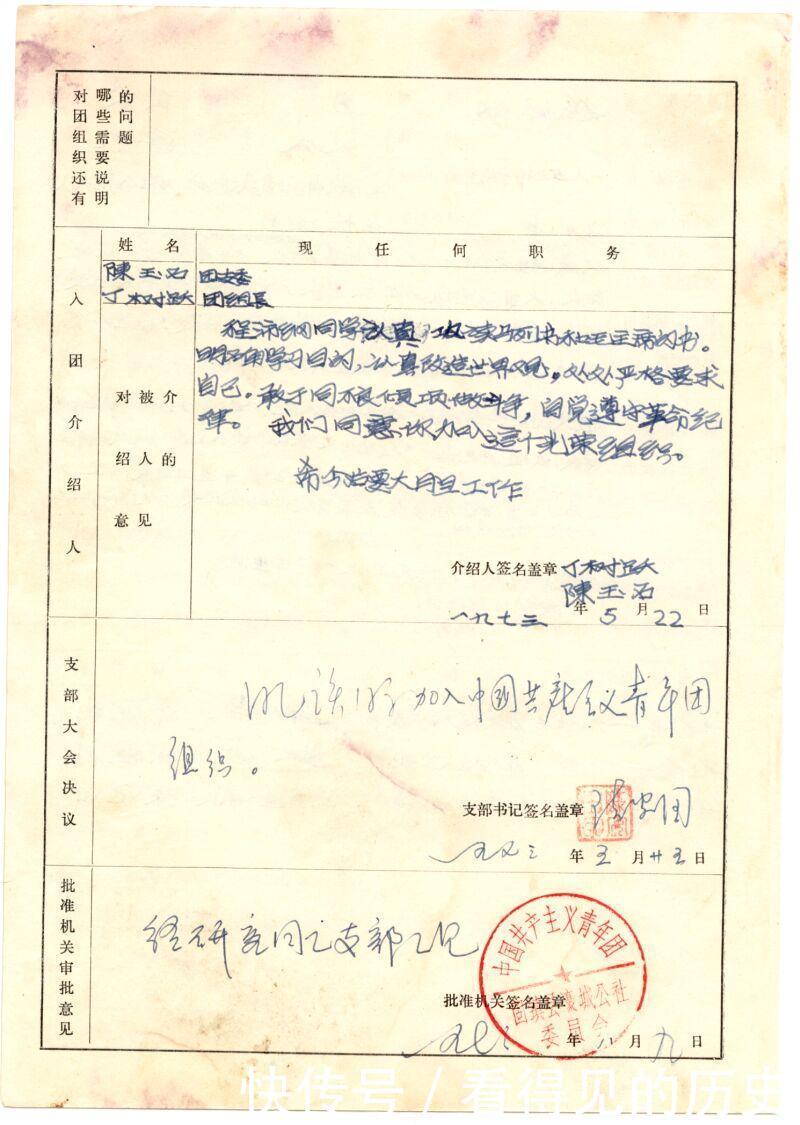 对团组织还有
哪些需要说明
的问题
入团介绍人
姓名
现任何职务
陳玉石 团支委
丁树跃 团组长
对被介
绍人的
意见
同学认真攻读马列书和毛主席的书。
明确学习目的,认真改造世界观。处处严格要求
自己。敢于同不良倾项做斗争,自觉遵守革命纪
律。我们同意你加入这个光荣组织。
希今后要大胆工作
介绍人签名盖章 丁树跃
陳玉石
一九七三年5月22日
支部大会决议
加入中國共产主义青年团
组织。
支部书记签名盖章
年五月廿五日
批准机关审批意见
经研究同意支部意见
中国共产主义青年团
公社
委员会
批准机关签名盖章
年 月九日
快传号/看得见的历史